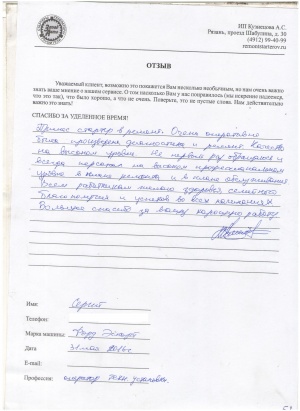 ИП Кузнецова А.С.
Рязань, проезд Шабулина, д. 30
(4912) 99-40-99
remontstarterov.ru
ОТЗЫВ
Уважаемый клиент, возможно это покажется Вам несколько необычным, но нам очень важно
знать ваше мнение о нашем сервисе. О том насколько Вам у нас понравилось (мы искренне надеемся,
что это так), что было хорошо, а что не очень. Поверьте, что не пустые слова. Нам действительно
важно это знать!
СПАСИБО ЗА УДЕЛЕННОЕ ВРЕМЯ!
Принес стартер в ремонт. Очень оперативно
была проведена диагностика и ремонт. Качество
на высоком уровне. Не первый раз обращаюсь и
всегда персонал на высоком профессиональном
уровне в плане ремонта и в плане обслуживания.
Всем работникам желаю здоровья, семейного
благополучия и успехов во всех начинаниях.
Большое спасибо за вашу хорошую работу
Имя: Сергей
Телефон:
Марка машины: Форд Эскорт
Дата 31 мая 2016г
E-mail:
Профессия: оператор техн. установки.